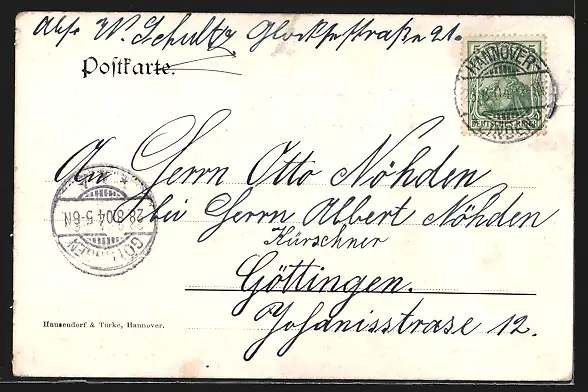 Abs. W. Schultz Glocksestraße 21.
Postkarte.
HANNOVER
An Herrn Otto Nöhden
bei Herrn Albert Nöhden
Kürschner
Göttingen.
Johanisstrase 12.
GÖTTINGEN
28.8.04.5-6N
Hausendorf & Türke, Hannover.